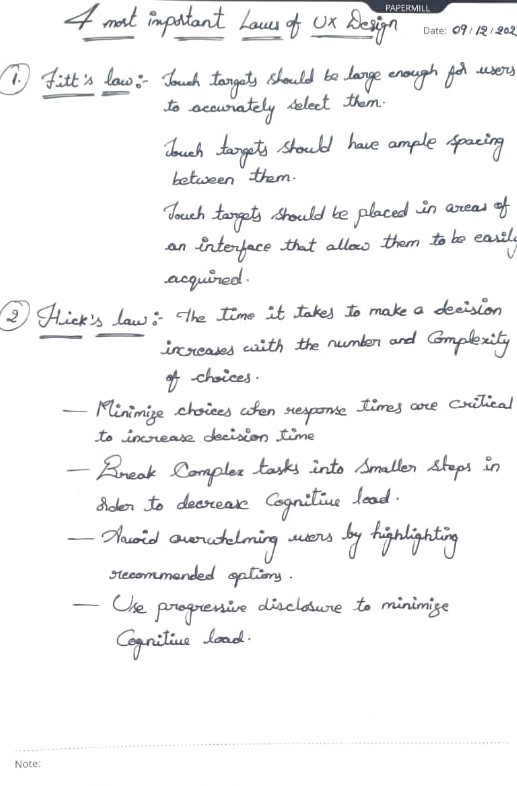 PAPERMILL
4 most important Laws of UX Design
Date: 09/12/202
1. Fitt's law:- Touch targets should be large enough for users
to accurately select them.
Touch targets should have ample spacing
between them.
Touch targets should be placed in areas of
an interface that allow them to be easily
acquired.
2 Hick's law:- The time it takes to make a decision
increases with the number and Complexity
of choices.
— Minimize choices when response times are critical
to increase decision time
— Break Complex tasks into smaller steps in
order to decrease Cognitive load.
— Avoid overwhelming users by highlighting
recommended options.
— Use progressive disclosure to minimize
Cognitive load.
Note: